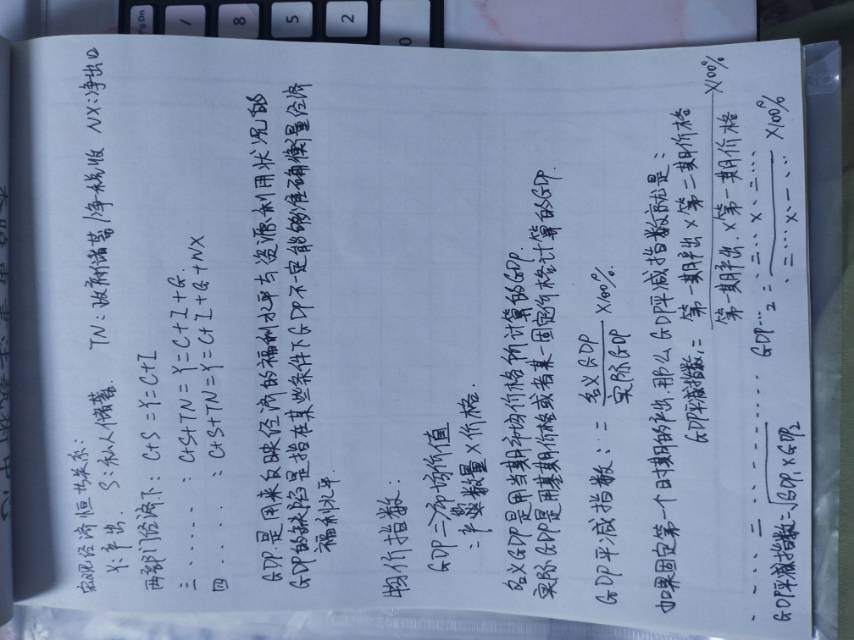 宏观经济恒等关系:
Y:产出. S:私人储蓄. TN:政府储蓄/净税收 NX:净出口
两部门经济下: C+S=Y=C+I
三 . . . . . : C+S+TN=Y=C+I+G.
四 . . . . : C+S+TN=Y=C+I+G+NX
GDP是用来反映经济的福利水平与资源利用状况的
GDP的缺陷是指在某些条件下GDP不一定能够准确衡量经济
福利水平.
物价指数:
GDP=>市场价值
=数量×价格.
名义GDP是用当期市场价格所计算的GDP.
实际GDP是用基期价格或者某一固定价格计算的GDP.
GDP平减指数:= 名义GDP/实际GDP ×100%.
如果固定第一个时期的产出,那么GDP平减指数就是:
GDP平减指数1= 第一期产出×第二期价格/第一期产出×第一期价格 ×100%
. . . 二 . . . . . . . . . . . GDP...2= .二...×.二.../.二...×.一... ×100%
GDP平减指数=√GDP1×GDP2
Pg Dn
/
8
5
2
0